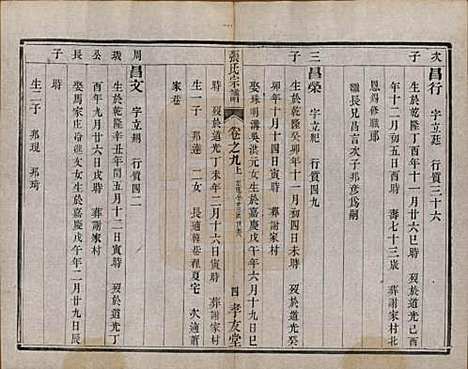 次子
昌行 字立廷 行質三十六
生於乾隆丁酉年十一月廿六巳時 歿於道光己酉
年十二月初五酉時 壽七十三歲 葬謝家村北
恩錫修職郎
嗣長兄昌言次子邦彥為嗣
三子
昌榮 字立 行質四九
生於乾隆癸卯年十一月初四日寅時 歿於道光丁
卯年十月十四日寅時 葬謝家村
娶珠明溝吳洪元女生於嘉慶戊午年六月十七日
時 歿於道光丁未年二月十六日寅時 葬謝家村
生一子 邦達 二女 長適 巷程 次適蕭
家巷
張氏宗譜
卷之九上
四 孝友堂
周瑞公子
昌文 字立 行質四二
生於乾隆辛丑年閏五月十二日寅時 歿於道光丁
酉年九月廿六日 時 葬謝家村
娶馬家庄 女生於嘉慶戊午年二月廿九日辰
時
生二子 邦現 邦琦